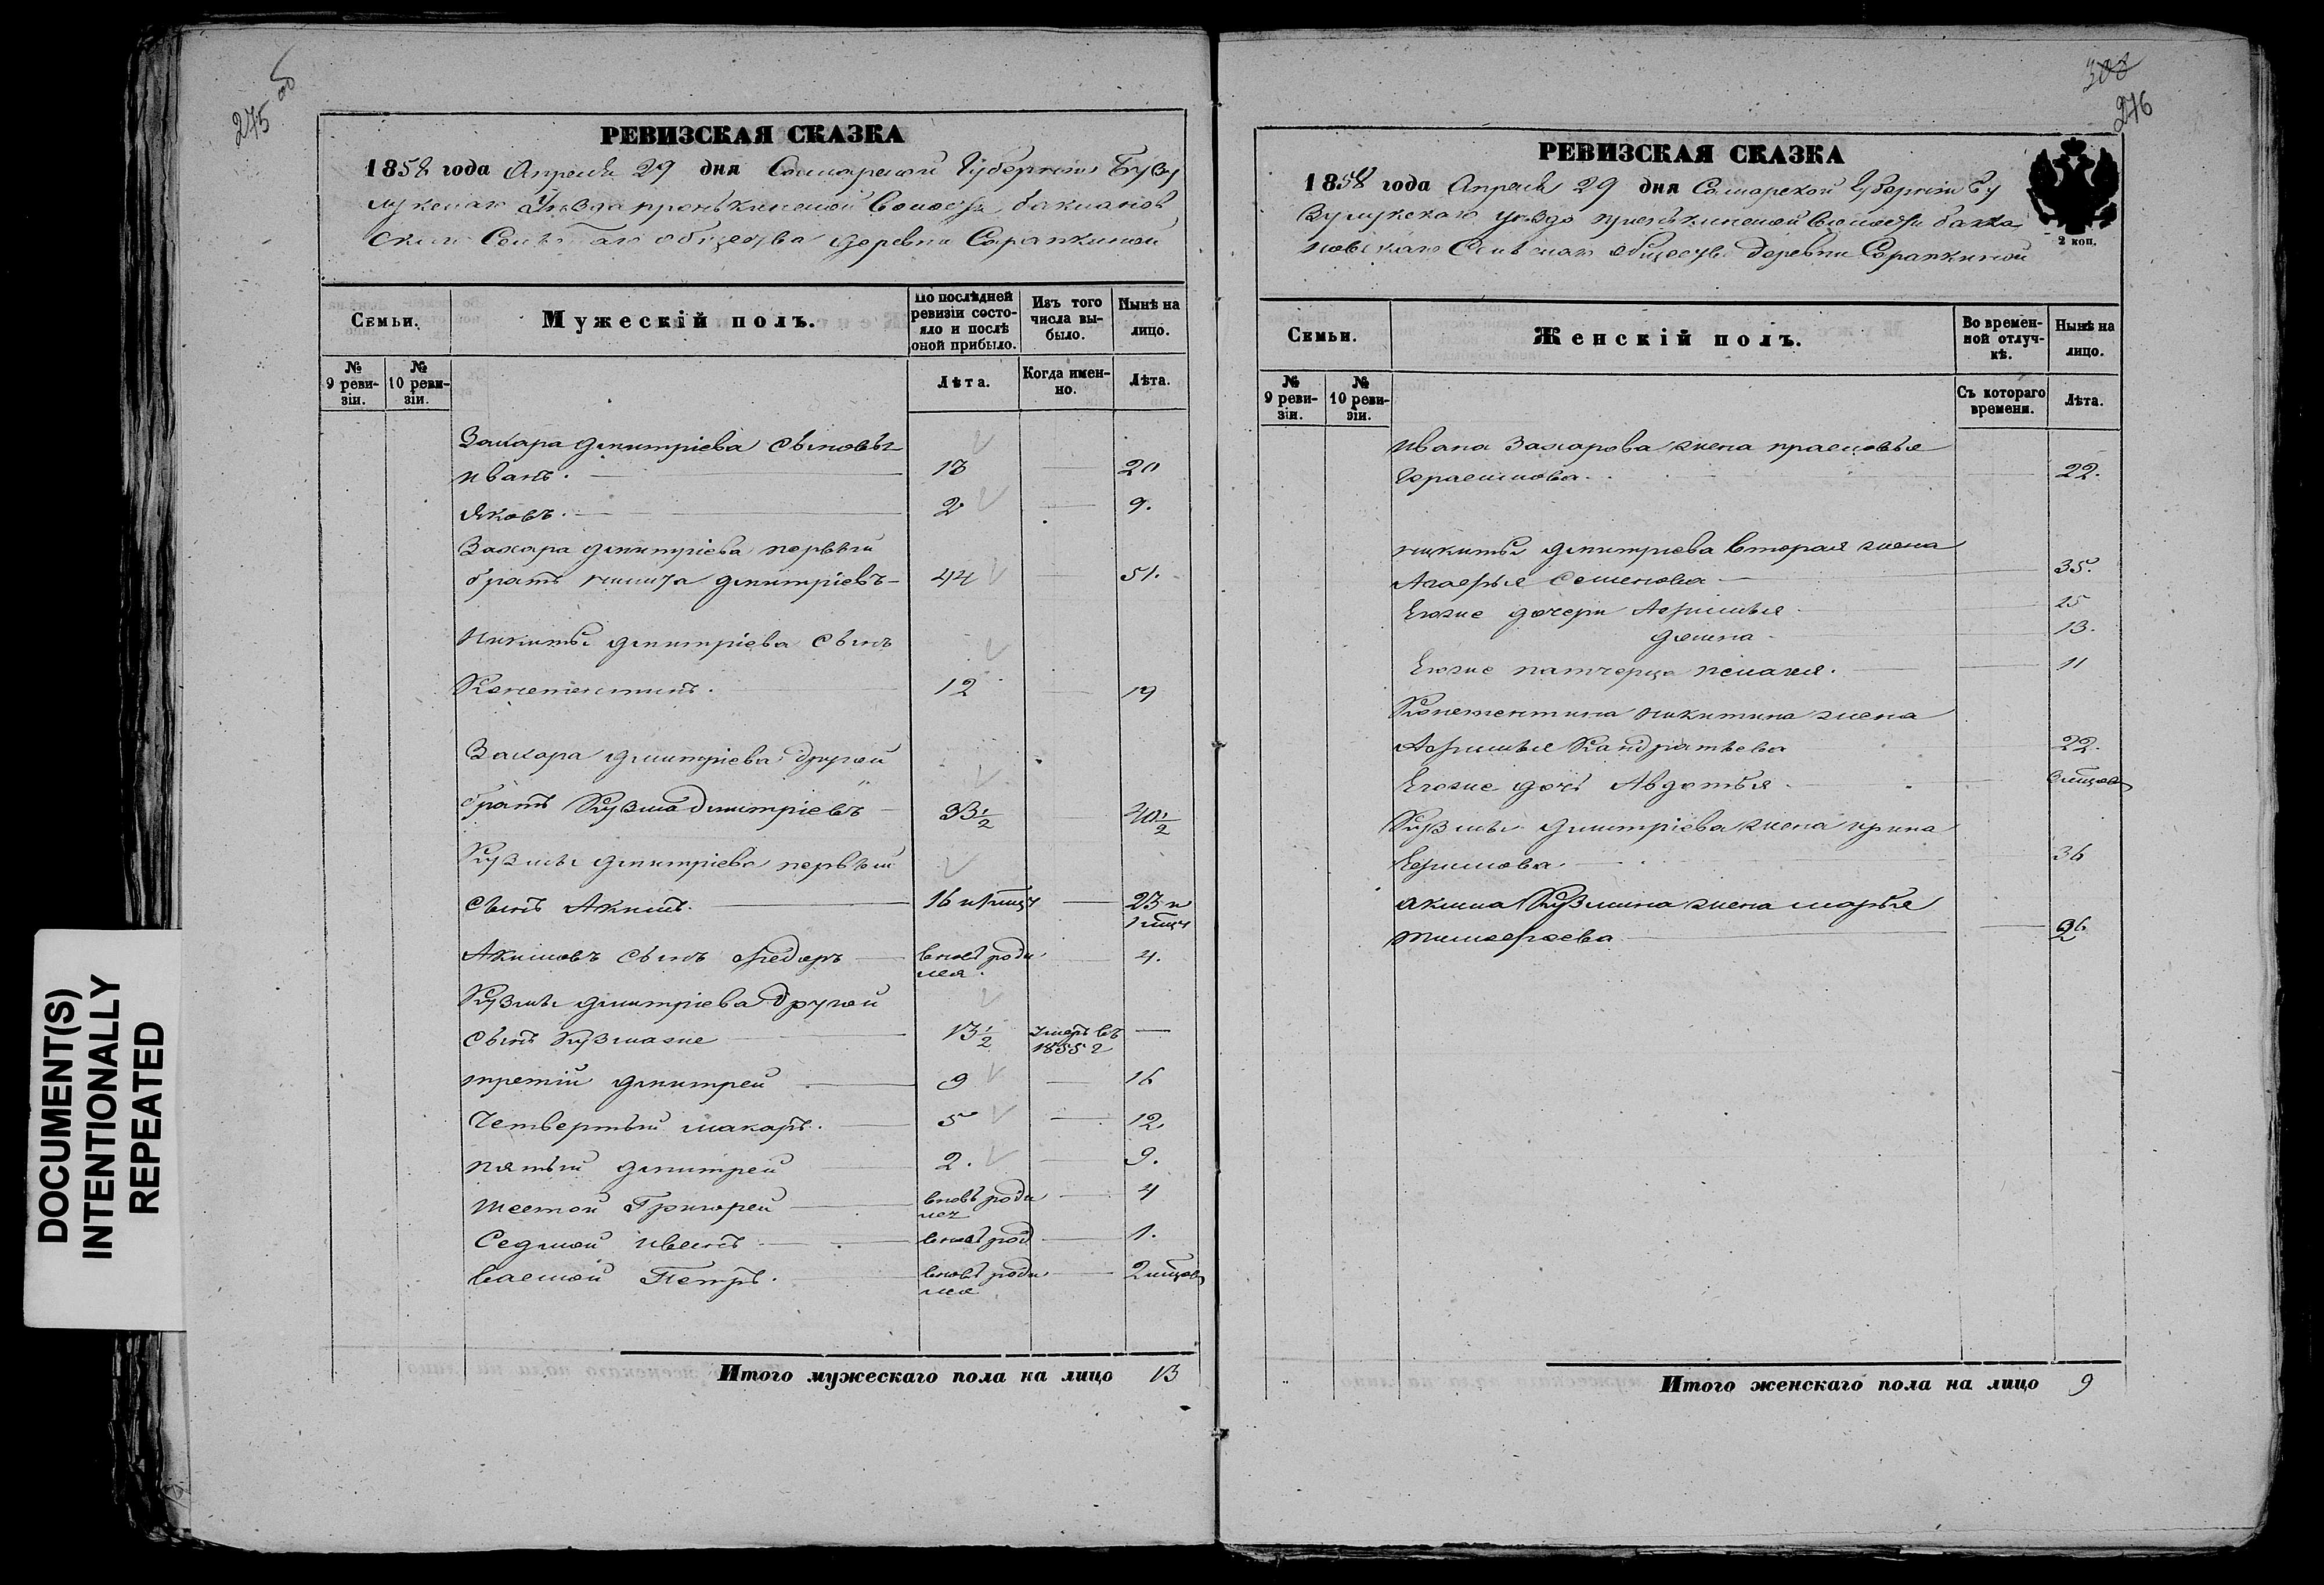 275 об
РЕВИЗСКАЯ СКАЗКА
1858 года Апреля 29 дня Самарской Губернии Бузу
лукскаго Уезда пронькинской Волости бакланов
скаго общества деревни Сарапкиной
Семьи.
Мужескій полъ.
По послѣдней ревизіи состо-
яло и послѣ
оной прибыло.
Изъ того
числа вы-
было.
Нынѣ на
лицо.
№
9 реви-
зіи.
№
10 реви-
зіи.
Лѣта.
Когда имен-
но.
Лѣта.
Захара дмитріева сыновья
иванъ. 13 20
Яковъ. 2 9.
Захара дмитріева первый
братъ никита дмитріевъ 44 51.
Никиты дмитріева сынъ
Констентинъ. 12 19
Захара дмитріева другой
братъ Кузма дмитріевъ 33 1/2 40 1/2
Кузмы дмитріева первый
сынъ Акимъ. 16 и 1 мцъ 23 и
1 мцъ
Акимовъ сынъ Федоръ вновь роди
лся. 4.
Кузмы дмитріева другой
сынъ Кузмаже 13 1/2 умеръ въ
1855 г
третій дмитрей 9 16
Четвертый макаръ. 5 12.
пятый дмитрей 2. 9.
шестой Григорей вновь роди
лся 4
Седмой вновь род 1.
Васмой Петръ. вновь роди
лся 2 мцов
Итого мужескаго пола на лицо 13
308
276
РЕВИЗСКАЯ СКАЗКА
2 коп.
1858 года Апреля 29 дня Самарской Губернии Бу
зулукскаго уезда пронькинской Волости бакла
новскаго Сельскаго общества деревни Сарапкиной
Семьи.
Женскій полъ.
Во времен-
ной отлуч-
кѣ.
Нынѣ на
лицо.
№
9 реви-
зіи.
№
10 реви-
зіи.
Съ котораго
времени.
Лѣта.
ивана Захарова жена прасковья
Герасимова. 22.
никиты дмитрова вторая жена
Семенова 35.
Егоже дочери Афимья 25
домна 13.
Егоже патчерца пелагея. 11
Констентина никитина жена
Афимья Кандратьева 22.
Егоже дочь Авдотья 3 мцов
Кузмы дмитріева жена ирина
Ефимова 36
акима Кузмина жена марья
тимофеева 26
Итого женскаго пола на лицо 9
DOCUMENT(S)
INTENTIONALLY
REPEATED